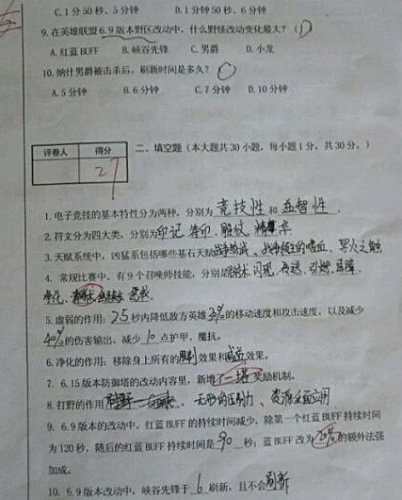 C. 1 分 50 秒、5 分钟 D. 1 分钟 50 秒、6 分钟
9. 在英雄联盟 6.9 版本野区改动中，什么野怪改动变化最大？（ ）
A. 红蓝 BUFF B. 峡谷先锋 C. 男爵 D. 小龙
10. 纳什男爵被击杀后，刷新时间是多久？
A. 5 分钟 B. 6 分钟 C. 7 分钟 D. 10 分钟
评卷人 得分
27
二、填空题（本大题共 30 小题，每小题 1 分，共 30 分。）
1. 电子竞技的基本特性分为两种，分别为 竞技性 和 益智性 。
2. 符文分为四大类，分别为 印记 符印 雕纹 精华
3. 天赋系统中，凶猛系包括哪些基石天赋 战争热诚、战争领主的嗜血、
4. 常规比赛中，有 9 个召唤师技能，分别是 闪现、传送、引燃、屏障、
净化、
5. 虚弱的作用：2.5 秒内降低敌方英雄 的移动速度和攻击速度，以及减少
40% 的伤害输出，减少 10 点护甲，魔抗。
6. 净化的作用：移除身上所有的 效果和 效果。
7. 6.15 版本防御塔的改动内容里，新增了 一塔 奖励机制。
8. 打野的作用 无形的压力、资源
9. 6.9 版本的改动中，红蓝 BUFF 的持续时间减少，除第一个红蓝 BUFF 持续时间
为 120 秒，随后的红蓝 BUFF 持续时间是 90 秒；蓝 BUFF 改为 的额外法强
加成。
10. 6.9 版本改动中，峡谷先锋于 6 刷新，且不会 刷新